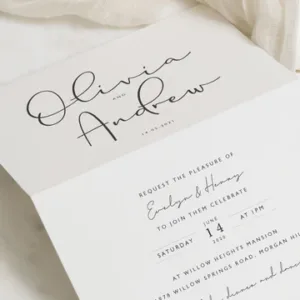 Olivia
AND
Andrew
REQUEST THE PLEASURE OF
Evelyn & Henry
TO JOIN THEM CELEBRATE
JUNE
SATURDAY 14 AT 1PM
AT WILLOW HEIGHTS MANSION
WILLOW SPRINGS ROAD, MORGAN HILL
dinner and